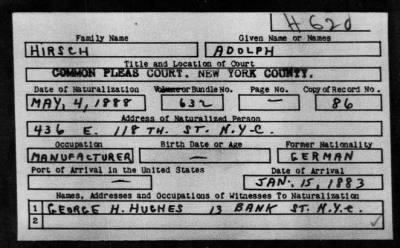 H 620
Family Name Given Name or Names
HIRSCH ADOLPH
Title and Location of Court
COMMON PLEAS COURT. NEW YORK COUNTY.
Date of Naturalization Volume or Bundle No. Page No. Copy of Record No.
MAY, 4, 1888 632 — 86
Address of Naturalized Person
436 E. 118 TH. ST. N.Y-C.
Occupation Birth Date or Age Former Nationality
MANUFACTURER — GERMAN
Port of Arrival in the United States Date of Arrival
— JAN. 15, 1883
Names, Addresses and Occupations of Witnesses To Naturalization
1 GEORGE H. HUGHES 13 BANK ST. N.Y.C.
2